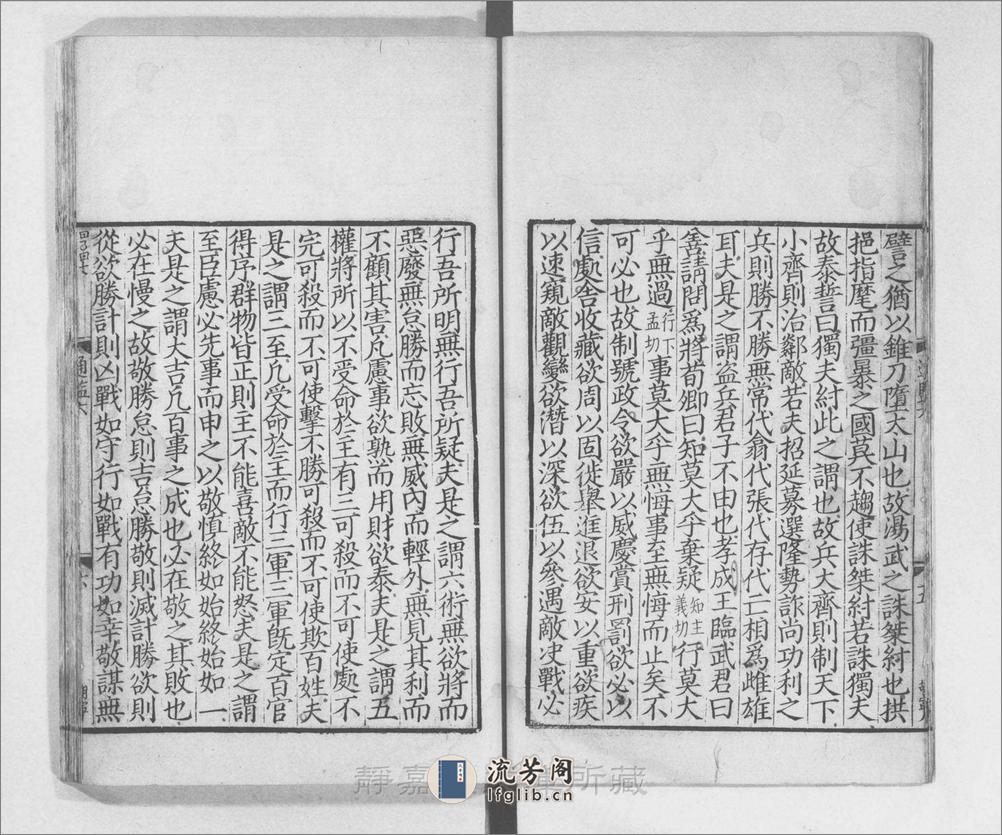 譬之猶以錐刀墮太山也故湯武之誅桀紂也拱
挹指麾而彊暴之國莫不趨使誅桀紂若誅獨夫
故泰誓曰獨夫紂此之謂也故兵大齊則制天下
小齊則治鄰敵若夫招延募選隆勢詐尚功利之
兵則勝不勝無常代翕代張代存代亡相爲雌雄
耳夫是之謂盜兵君子不由也孝成王臨武君曰
善請問爲將荀卿曰知莫大乎棄疑知主義切行莫大
乎無過行下孟切事莫大乎無悔事至無悔而止矣不
可必也故制號政令欲嚴以威慶賞刑罰欲必以
信處舍收藏欲周以固徙舉進退欲安以重欲疾
以速窺敵觀變欲潛以深欲伍以參遇敵决戰必
行吾所明無行吾所疑夫是之謂六術無欲將而
惡廢無怠勝而忘敗無威内而輕外無見其利而
不顧其害凡慮事欲熟而用財欲泰夫是之謂五
權將所以不受命於主有三可殺而不可使處不
完可殺而不可使擊不勝可殺而不可使欺百姓夫
是之謂三至凡受命於主而行三軍三軍旣定百官
得序群物皆正則主不能喜敵不能怒夫是之謂
至臣慮必先事而申之以敬慎終如始終始如一
夫是之謂大吉凡百事之成也必在敬之其敗也
必在慢之故敬勝怠則吉怠勝敬則滅計勝欲則
從欲勝計則凶戰如守行如戰有功如幸敬謀無
通鑑六
六
靜嘉 所藏
流芳阁
lfglib.cn